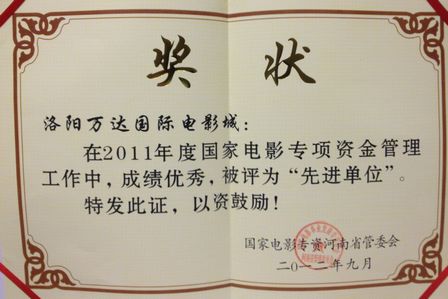 奖 状
洛阳万达国际电影城：
在2011年度国家电影专项资金管理
工作中，成绩优秀，被评为“先进单位”。
特发此证，以资鼓励！
国家电影专资河南省管委会
二〇一二年九月